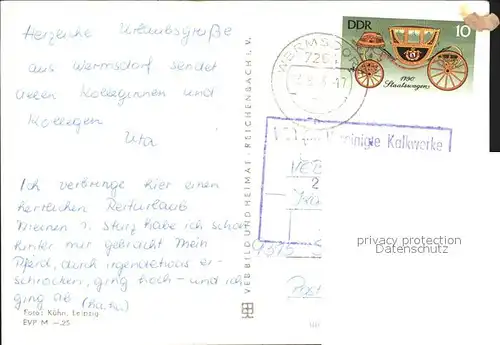 Herzliche Urlaubsgrüße
aus Wermsdorf sendet
lieben Kolleginnen und
Kollegen
Uta
Ich verbringe hier einen
herrlichen Reiturlaub
Meinen 1. Sturz habe ich schon
hinter mir gebracht Mein
Pferd, durch irgendetwas er-
schrocken, ging hoch – und ich
ging ab (ha. ha.)
Foto: Kühn, Leipzig
EVP M —.25
VEB BILD UND HEIMAT REICHENBACH i. V.
WERMSDORF
DDR 10
1790
Staatswagen
Vereinigte Kalkwerke
VEB
2
9375
privacy protection
Datenschutz